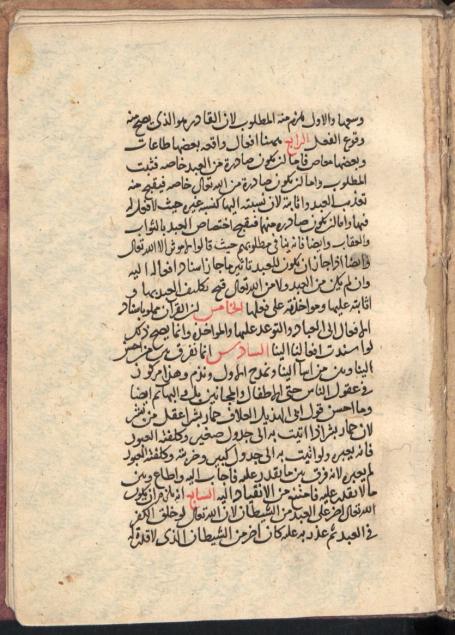 وسمها والاول يلزم منه المطلوب لان القادر هو الذى يصح منه
وقوع الفعل الرابع ههنا افعال واقعه بعضها طاعات
وبعضها معاص فاما ان يكون صادرة من العبد خاصه فثبت
المطلوب واما ان يكون صادرة من الله تعالى خاصه فيقبح منه
تعذيب العبد واثابته لان نسبته اليها كنسبه غيره حيث لا فعل له
فيها واما ان يكون صادره منهما فيقبح اختصاص العبد بالثواب
والعقاب وايضا فانه ينافى مطلوبهم حيث قالوا لا موثر الا الله تعالى
وايضا اذا جاز ان يكون للعبد تاثير ما جاز اسناد افعاله اليه
وان لم يكن من العبد ولا من الله تعالى قبح تكليف العبد بها و
اثابته عليها ومواخذته على فعلها الخامس ان القران مملو باسناد
الافعال الى العباد والتوعد عليها والمواخذه وانما يصح ذلك
لو استندت افعالنا الينا السادس انا نفرق بين من احسن
الينا وبين من اسآ الينا ونمدح الاول ونذم وهذا مركوز
فى عقول الناس حتى الاطفال والمجانين بل فى البهائم ايضا
وما احسن قول ابى الهذيل العلاف حمار بشر اعقل من بشر
لان حمار بشر اذا اتيت به الى جدول صغير وكلفته العبور
فانه يعبره ولو اتيت به الى جدول كبير وضربته وكلفته العبور
لم يعبره لانه فرق بين ما يقدر عليه فاجاب اليه واطاع وبين
ما لا يقدر عليه فامتنع من الانقياد اليه السابع انه يلزم ان يكون
الله تعالى اضر على العبد من الشيطان لان الله تعالى لو خلق الكفر
فى العبد ثم عذبه عليه كان اضر من الشيطان الذى لا قدرة له